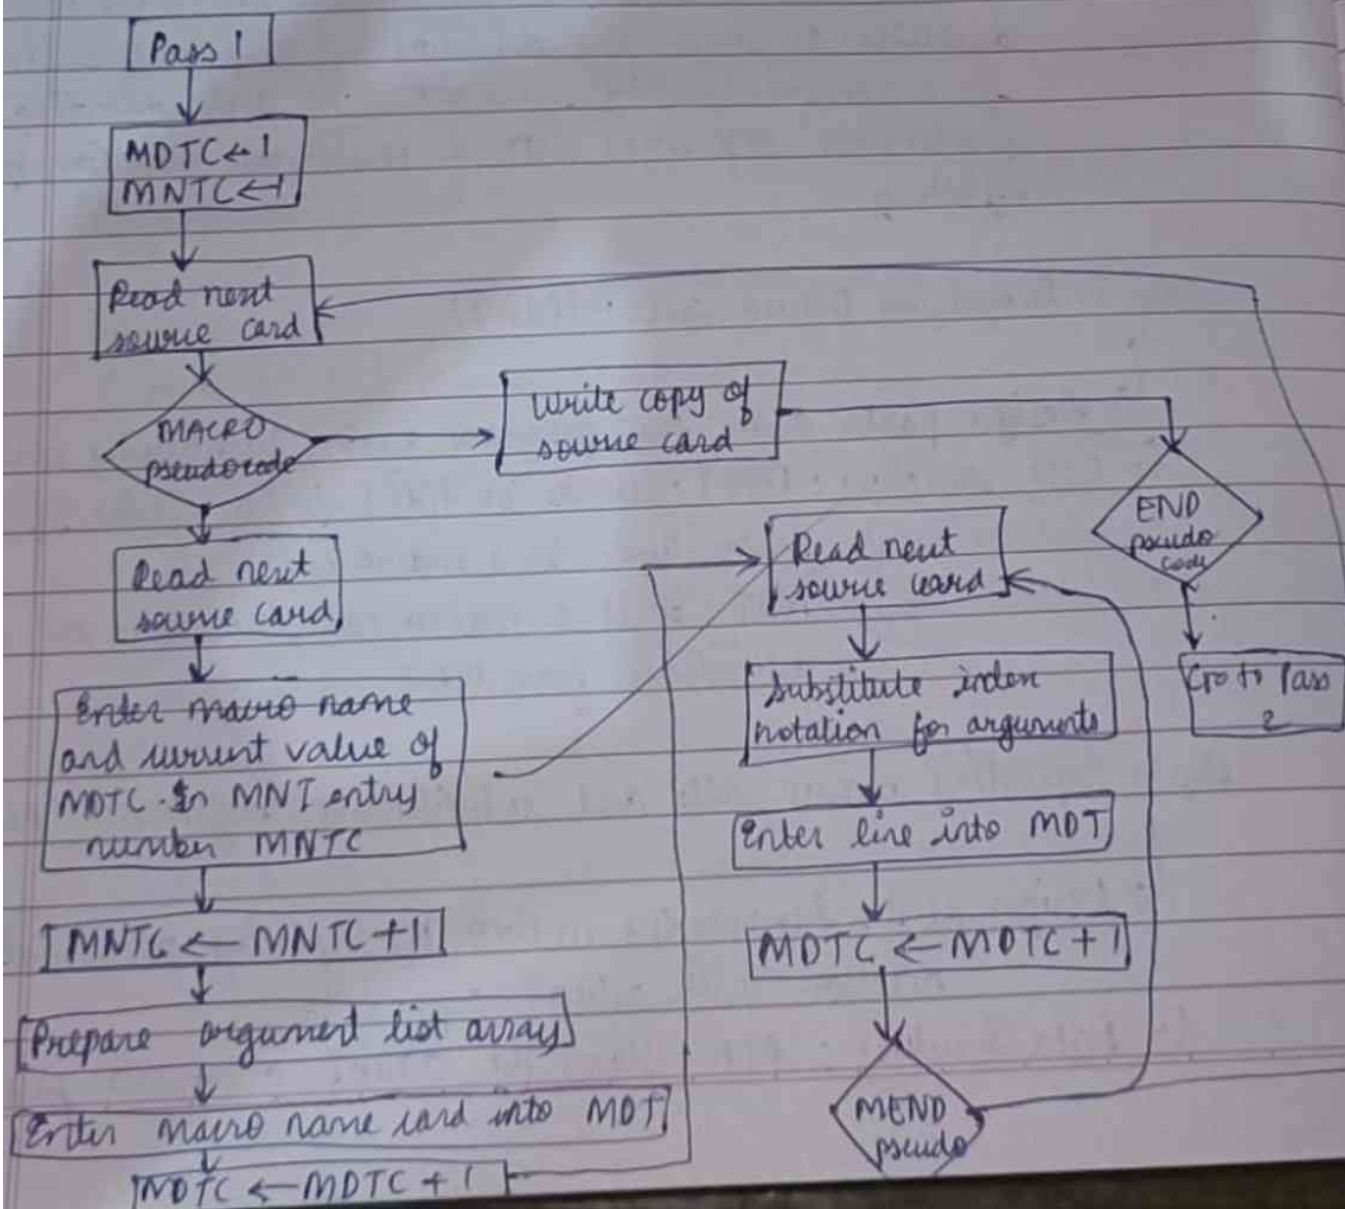 Pass 1
MDTC ← 1
MNTC ← 1
Read next
source card
MACRO
pseudocode
Write copy of
source card
END
pseudo
code
Go to Pass
2
Read next
source card
Enter macro name
and current value of
MDTC in MNT entry
number MNTC
MNTC ← MNTC + 1
Prepare argument list array
Enter macro name card into MDT
MDTC ← MDTC + 1
Read next
source card
Substitute index
notation for arguments
Enter line into MDT
MDTC ← MDTC + 1
MEND
pseudo